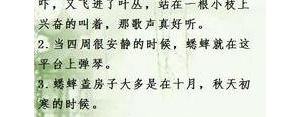 咋，又飞进了叶丛，站在一根小枝上
兴奋的叫着，那歌声真好听。
2. 当四周很安静的时候，蟋蟀就在这
平台上弹琴。
3. 蟋蟀盖房子大多是在十月，秋天初
寒的时候。